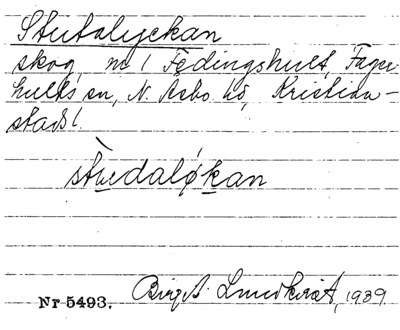 Stutalyckan
skog, nr 1 Fedingshult, Fager
hults sn, N. Åsbo hd, Kristian-
stads l.
stu̲daløkan
Nr 5493. Birgit Lundkvist, 1939.